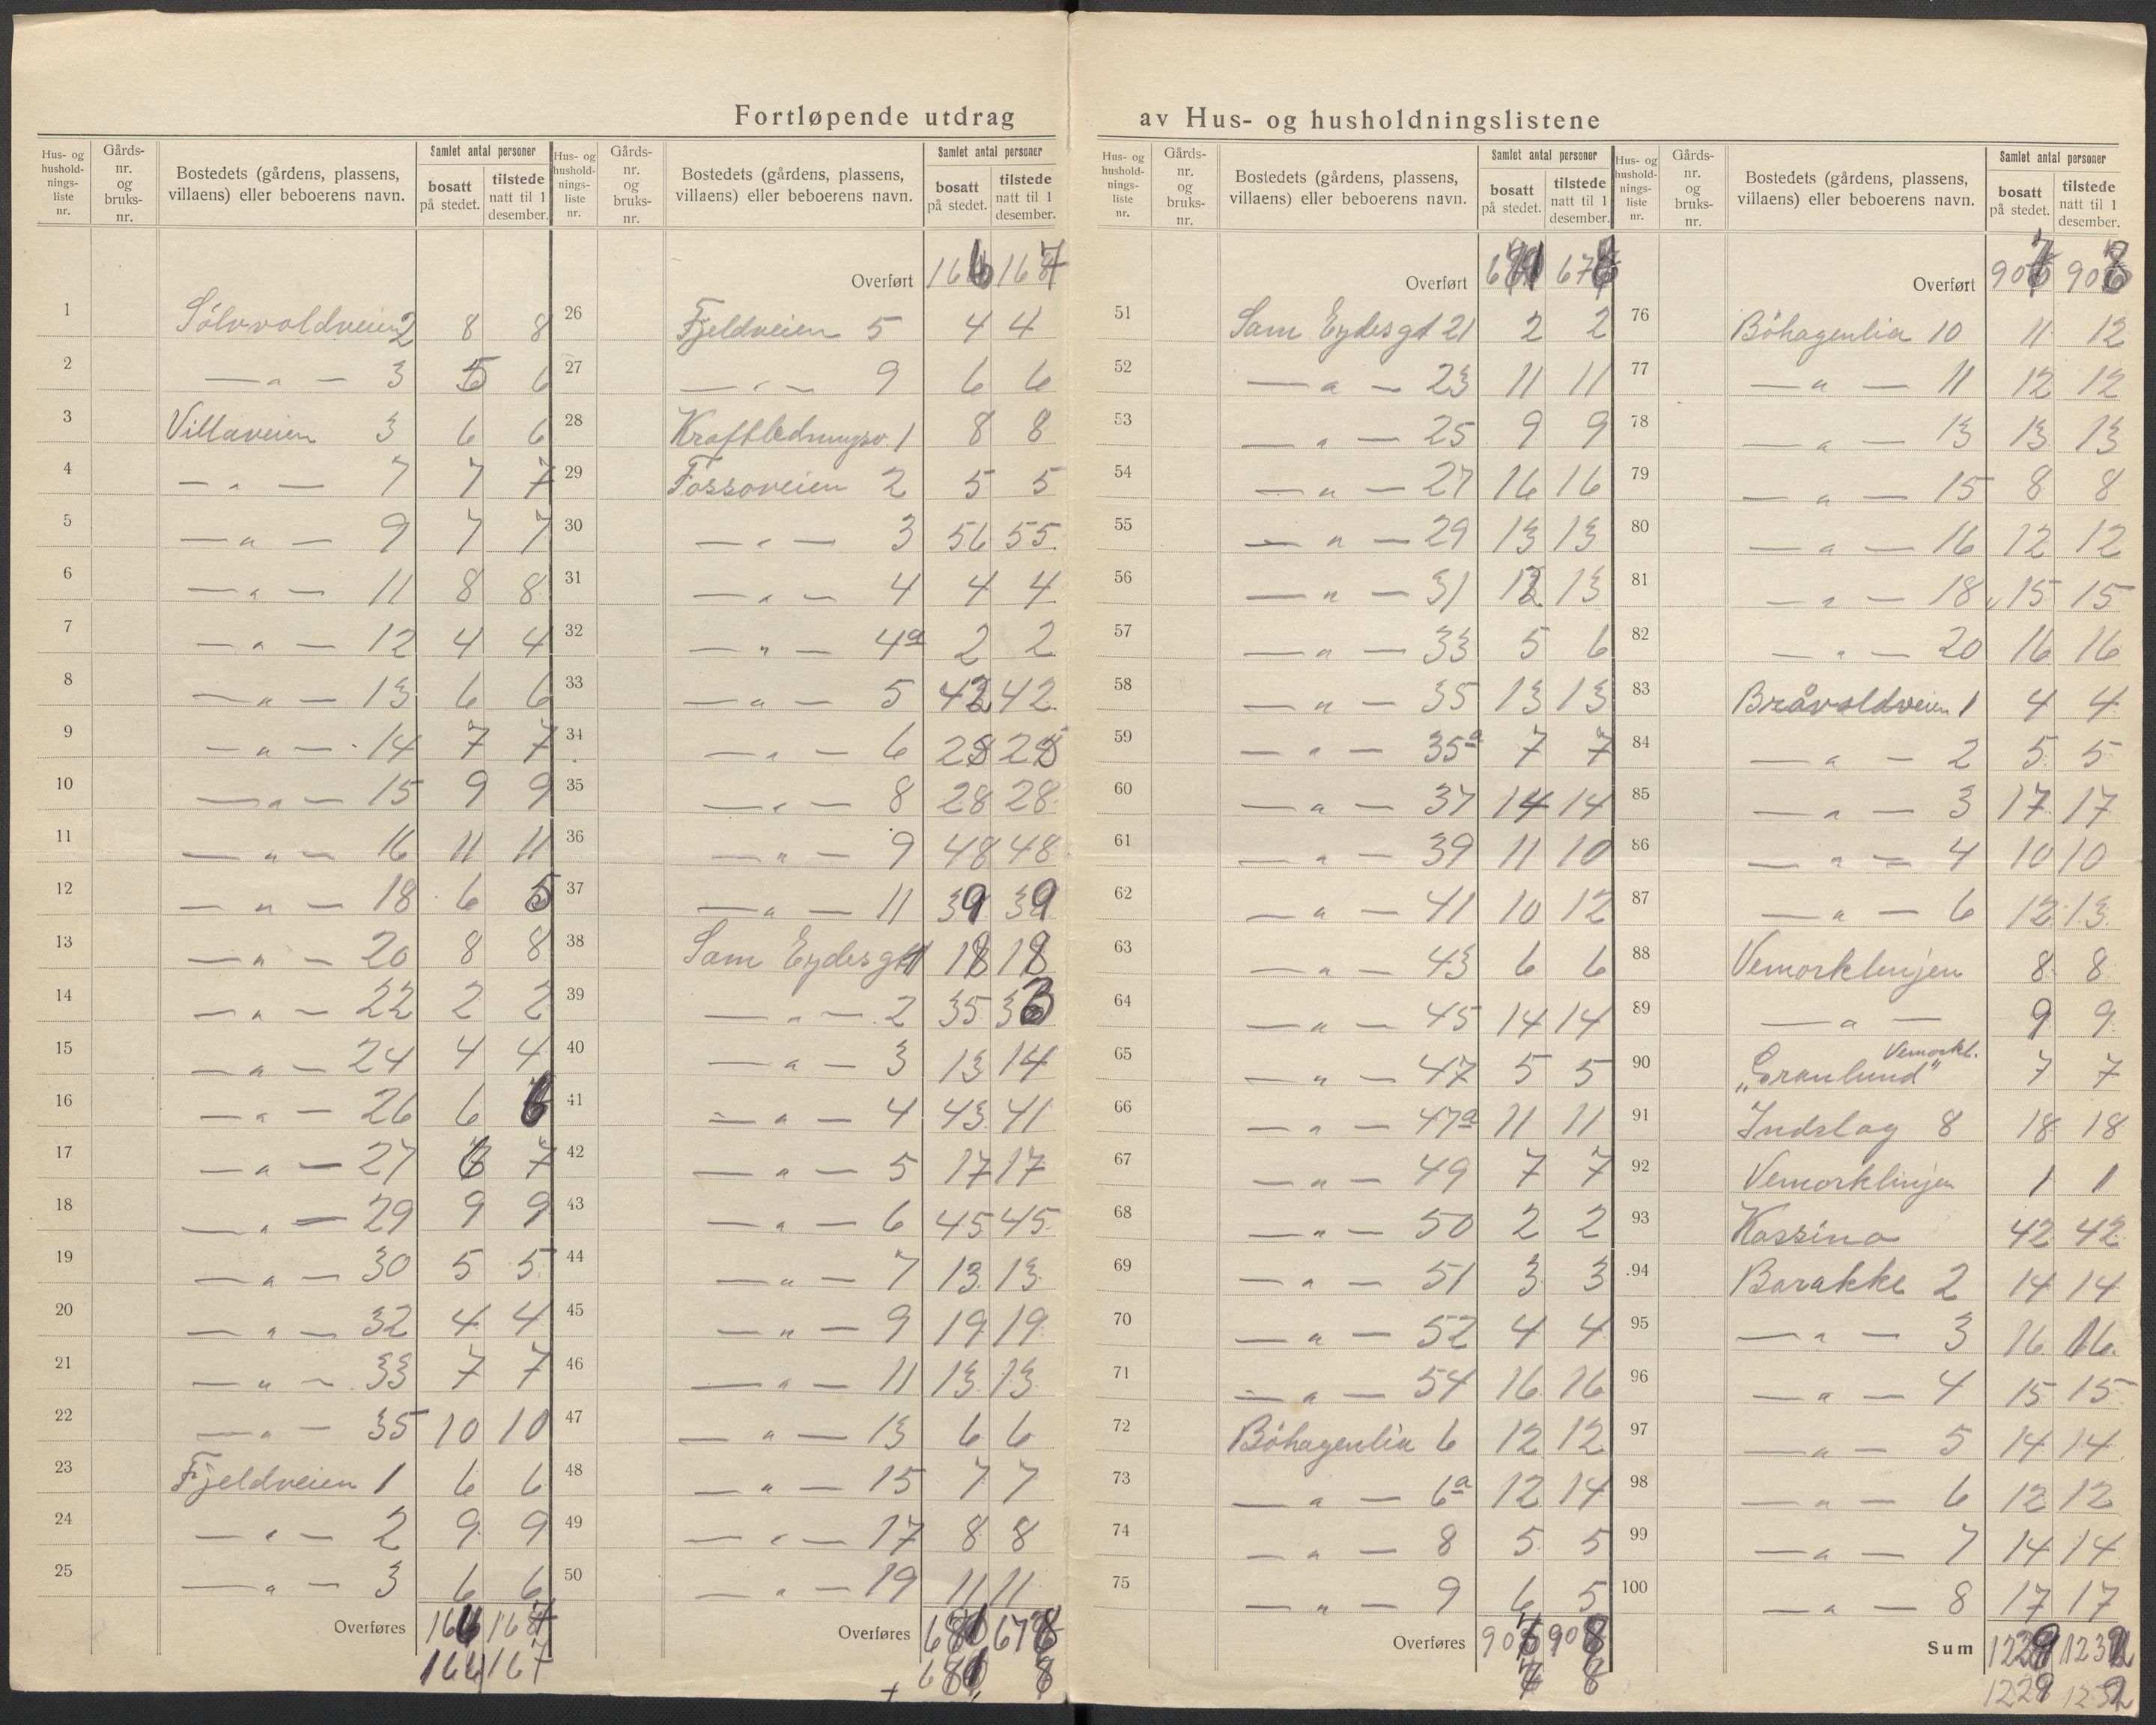 Fortløpende utdrag av Hus- og husholdningslistene
Hus- og hushold-nings-liste nr. Gårds-nr. og bruks-nr. Bostedets (gårdens, plassens, villaens) eller beboerens navn. Samlet antal personer bosatt på stedet. tilstede natt til 1 desember.
1 Sölvvoldveien 2 8 8
2 — " — 3 5 6
3 Villaveien 3 6 6
4 — " — 7 7 7
5 — " — 9 7 7
6 — " — 11 8 8
7 — " — 12 4 4
8 — " — 13 6 6
9 — " — 14 7 7
10 — " — 15 9 9
11 — " — 16 11 11
12 — " — 18 6 5
13 — " — 20 8 8
14 — " — 22 2 2
15 — " — 24 4 4
16 — " — 26 6
17 — " — 27 6 7
18 — " — 29 9 9
19 — " — 30 5 5
20 — " — 32 4 4
21 — " — 33 7 7
22 — " — 35 10 10
23 Fjeldveien 1 6 6
24 — " — 2 9 9
25 — " — 3 6 6
Overføres 166 167
166 167
Hus- og hushold-nings-liste nr. Gårds-nr. og bruks-nr. Bostedets (gårdens, plassens, villaens) eller beboerens navn. Samlet antal personer bosatt på stedet. tilstede natt til 1 desember.
Overført 166 167
26 Fjeldveien 5 4 4
27 — " — 9 6 6
28 Kraftledningsv. 1 8 8
29 Fossoveien 2 5 5
30 — " — 3 56 55
31 — " — 4 4 4
32 — " — 4a 2 2
33 — " — 5 42 42
34 — " — 6 28 28
35 — " — 8 28 28
36 — " — 9 48 48
37 — " — 11 39 39
38 Sam Eydesgt 1 18 18
39 — " — 2 35 33
40 — " — 3 13 14
41 — " — 4 43 41
42 — " — 5 17 17
43 — " — 6 45 45
44 — " — 7 13 13
45 — " — 9 19 19
46 — " — 11 13 13
47 — " — 13 6 6
48 — " — 15 7 7
49 — " — 17 8 8
50 — " — 19 11 11
Overføres 681 678
681 8
Hus- og hushold-nings-liste nr. Gårds-nr. og bruks-nr. Bostedets (gårdens, plassens, villaens) eller beboerens navn. Samlet antal personer bosatt på stedet. tilstede natt til 1 desember.
Overført 681 678
51 Sam Eydesgt 21 2 2
52 — " — 23 11 11
53 — " — 25 9 9
54 — " — 27 16 16
55 — " — 29 13 13
56 — " — 31 12 13
57 — " — 33 5 6
58 — " — 35 13 13
59 — " — 35a 7 7
60 — " — 37 14 14
61 — " — 39 11 10
62 — " — 41 10 12
63 — " — 43 6 6
64 — " — 45 14 14
65 — " — 47 5 5
66 — " — 47a 11 11
67 — " — 49 7 7
68 — " — 50 2 2
69 — " — 51 3 3
70 — " — 52 4 4
71 — " — 54 16 16
72 Böhagenlia 6 12 12
73 — " — 6a 12 14
74 — " — 8 5 5
75 — " — 9 6 5
Overføres 907 908
7 8
Hus- og hushold-nings-liste nr. Gårds-nr. og bruks-nr. Bostedets (gårdens, plassens, villaens) eller beboerens navn. Samlet antal personer bosatt på stedet. tilstede natt til 1 desember.
Overført 907 908
76 Böhagenlia 10 11 12
77 — " — 11 12 12
78 — " — 13 13 13
79 — " — 15 8 8
80 — " — 16 12 12
81 — " — 18 15 15
82 — " — 20 16 16
83 Bråvoldveien 1 4 4
84 — " — 2 5 5
85 — " — 3 17 17
86 — " — 4 10 10
87 — " — 6 12 13
88 Vemorklinjen 8 8
89 — " — 9 9
90 "Granlund" Vemorkl. 7 7
91 Indslag 8 18 18
92 Vemorklinjen 1 1
93 Kassino 42 42
94 Barakke 2 14 14
95 — " — 3 16 16
96 — " — 4 15 15
97 — " — 5 14 14
98 — " — 6 12 12
99 — " — 7 14 14
100 — " — 8 17 17
Sum 1229 1232
1229 1232